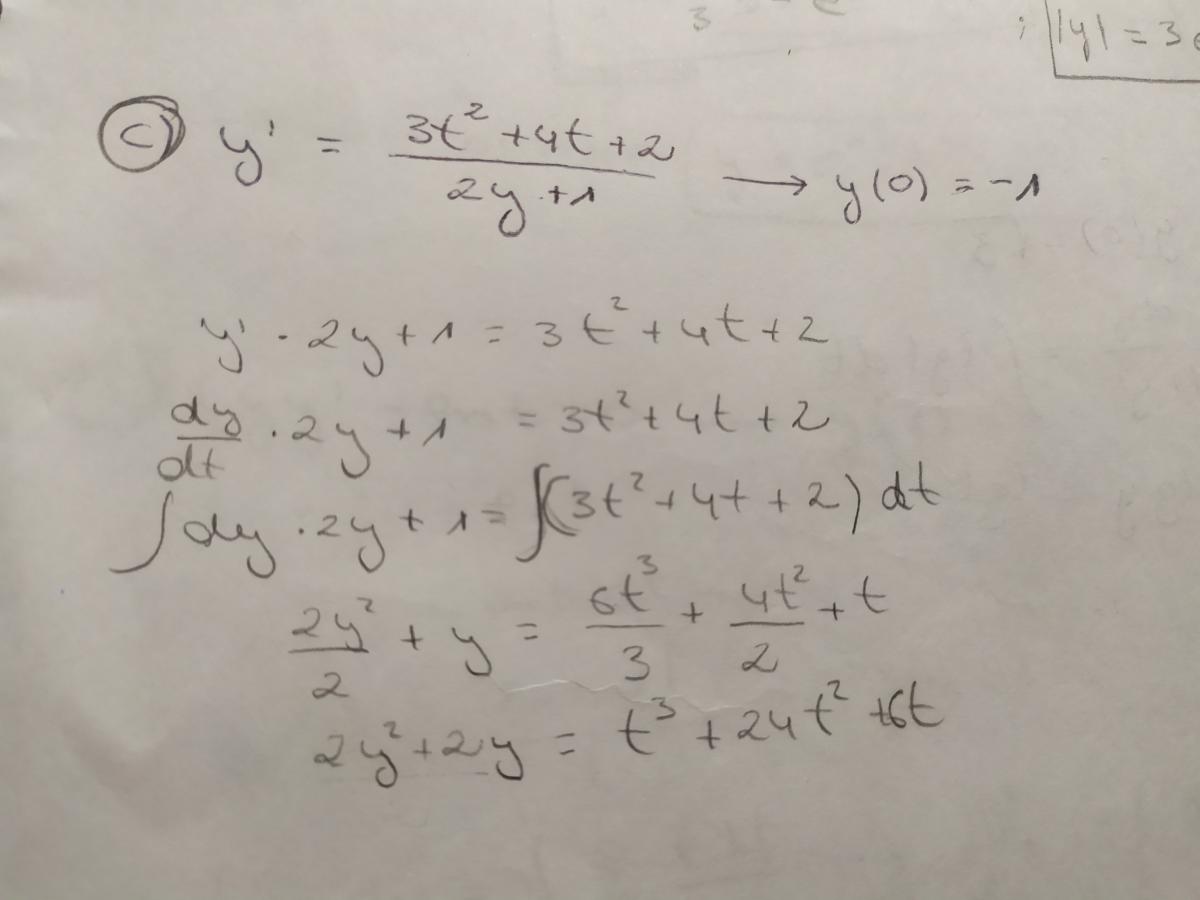 |y| = 3
c) y' = (3t² + 4t + 2)/(2y + 1) → y(0) = -1
y' · 2y + 1 = 3t² + 4t + 2
dy/dt · 2y + 1 = 3t² + 4t + 2
∫ dy · 2y + 1 = ∫(3t² + 4t + 2) dt
2y²/2 + y = 6t³/3 + 4t²/2 + t
2y² + 2y = t³ + 24t² + 6t